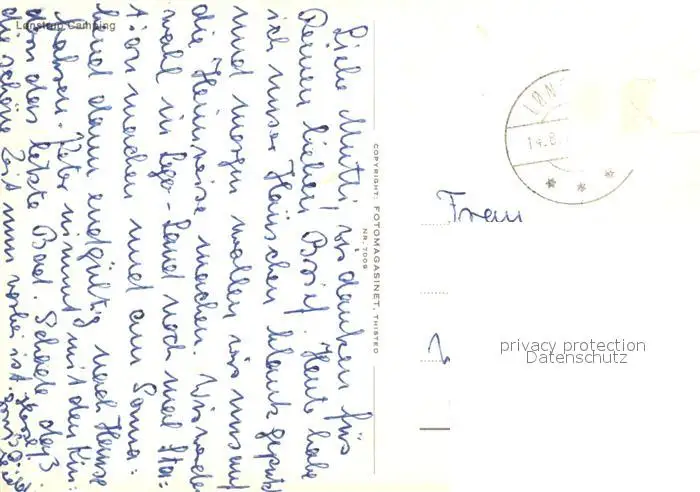 Lønstrup Camping
Liebe Mutti wir danken für
Deinen lieben Brief. Heute habe
ich unser Häuschen blank geputzt
und morgen wollen wir uns auf
die Heimreise machen. Wir werden
wohl in Lego-Land noch mal Sta:
tion machen und am Sonna:
bend dann endgültig nach Hause
fahren. Peter nimmt mit den Kin:
dern das letzte Bad. Schade daß
die schöne Zeit nun vorbei ist.
COPYRIGHT: FOTOMAGASINET, THISTED
NR. 7009
LØN
14.8.
Frau
privacy protection
Datenschutz